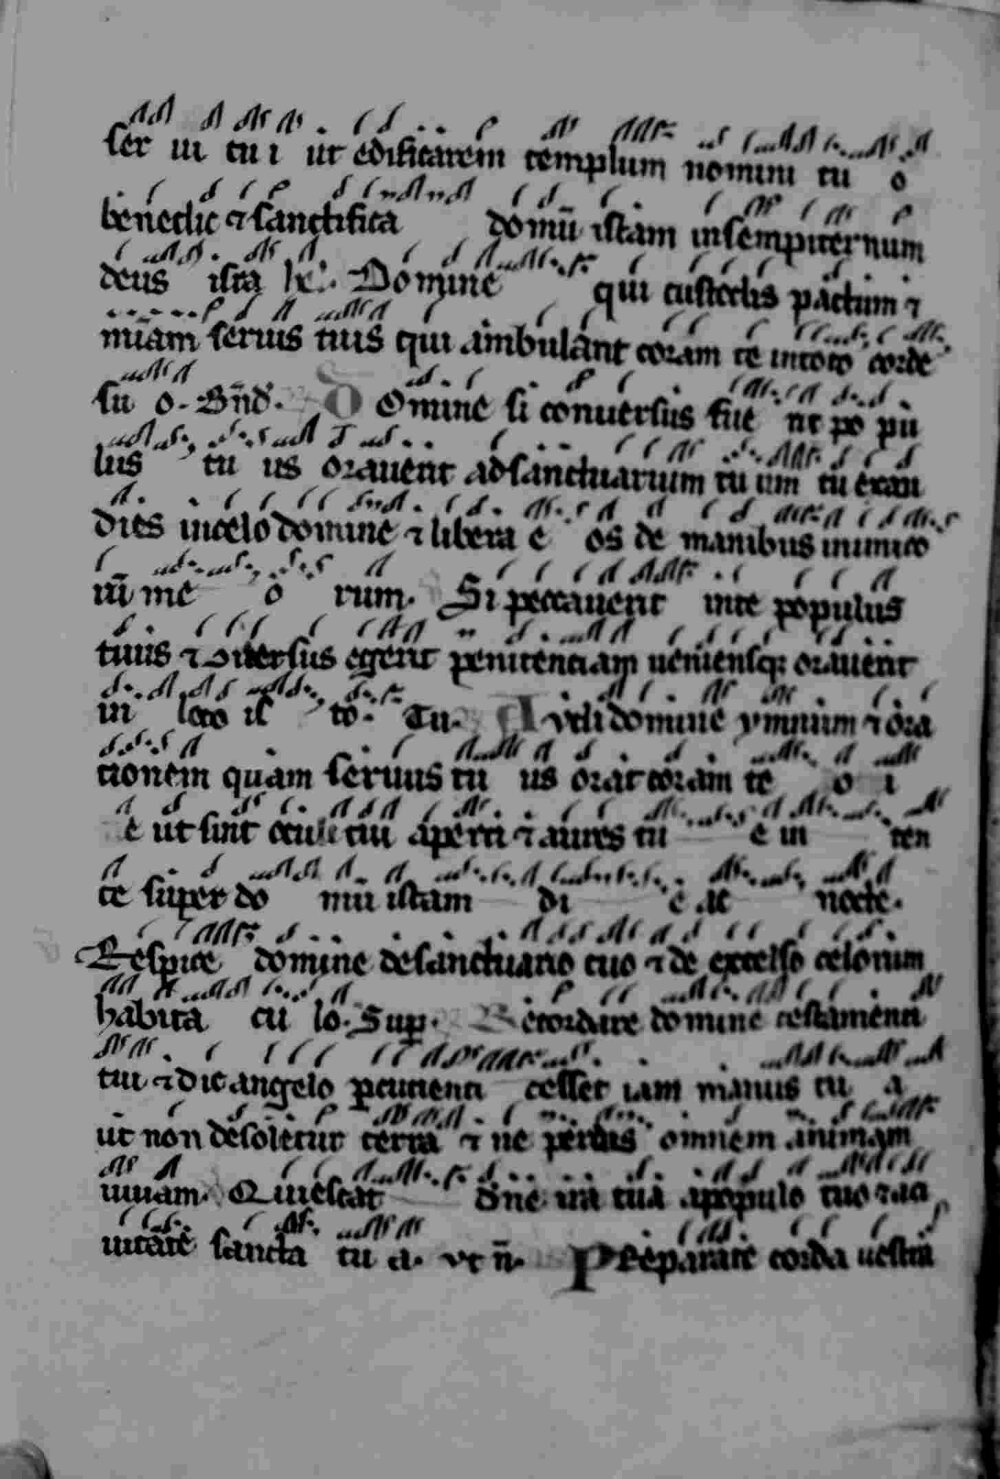 ser ui tui ut edificarem templum nomini tu o
benedic ⁊ sanctifica domū istam insempiternum
deus isra hel. Domine qui custodis pactum ⁊
mīam seruis tuis qui ambulant coram te intoto corde
su o. Bn̄d. Domine si conuersus fue rit po pu
lus tu us ⁊ orauerit ad sanctuarium tu um tu exau
dies incelo domine ⁊ libera e os de manibus inimico
rū me o rum. Si peccauerit inte populus
tuus ⁊ conuersus egerit penitentiam ueniensq; orauerit
in loco is to. Tu. Audi domine ymnum ⁊ ora
tionem quam seruus tu us orat coram te o i
e ut sint oculi tui aperti ⁊ aures tu e in ten
te super do mū istam di e ac nocte.
Respice domine desanctuario tuo ⁊ de excelso celorum
habita cu lo. Sup. Recordare domine testamenti
tui ⁊ dic angelo percutienti cesset iam manus tu a
ut non desoletur terra ⁊ ne perdas omnem animam
uiuam. Quiescat dn̄e ira tua apopulo tuo ⁊ aci
uitate sancta tu a. ut n̄. Preparate corda uestra